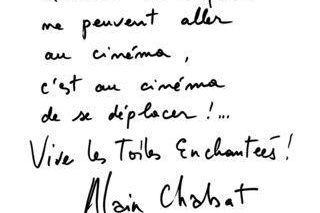 ne peuvent aller
au cinéma,
c'est au cinéma
de se déplacer !...
Vive les Toiles Enchantées !
Alain Chabat